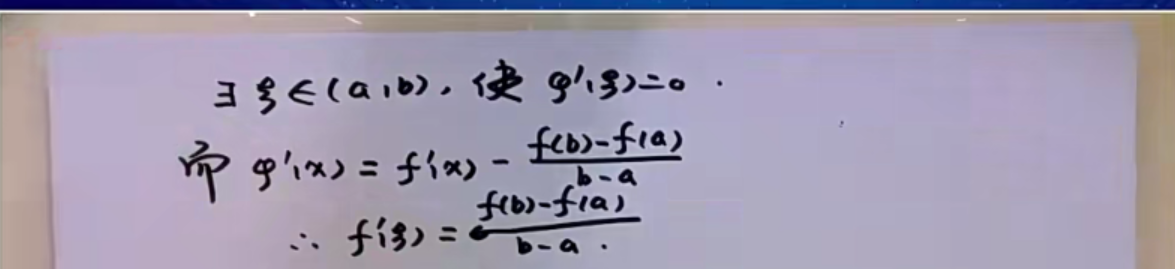 ∃ ξ ∈ (a,b), 使 φ'(ξ)=0.
而 φ'(x) = f'(x) - \frac{f(b)-f(a)}{b-a}
∴ f'(ξ) = \frac{f(b)-f(a)}{b-a}.